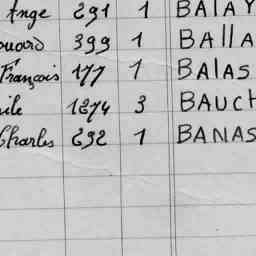 Ange 291 1 BALAY
ouard 399 1 BAllA
François 177 1 BAlAS
ile 1274 3 BAUCH
Charles 292 1 BANAS